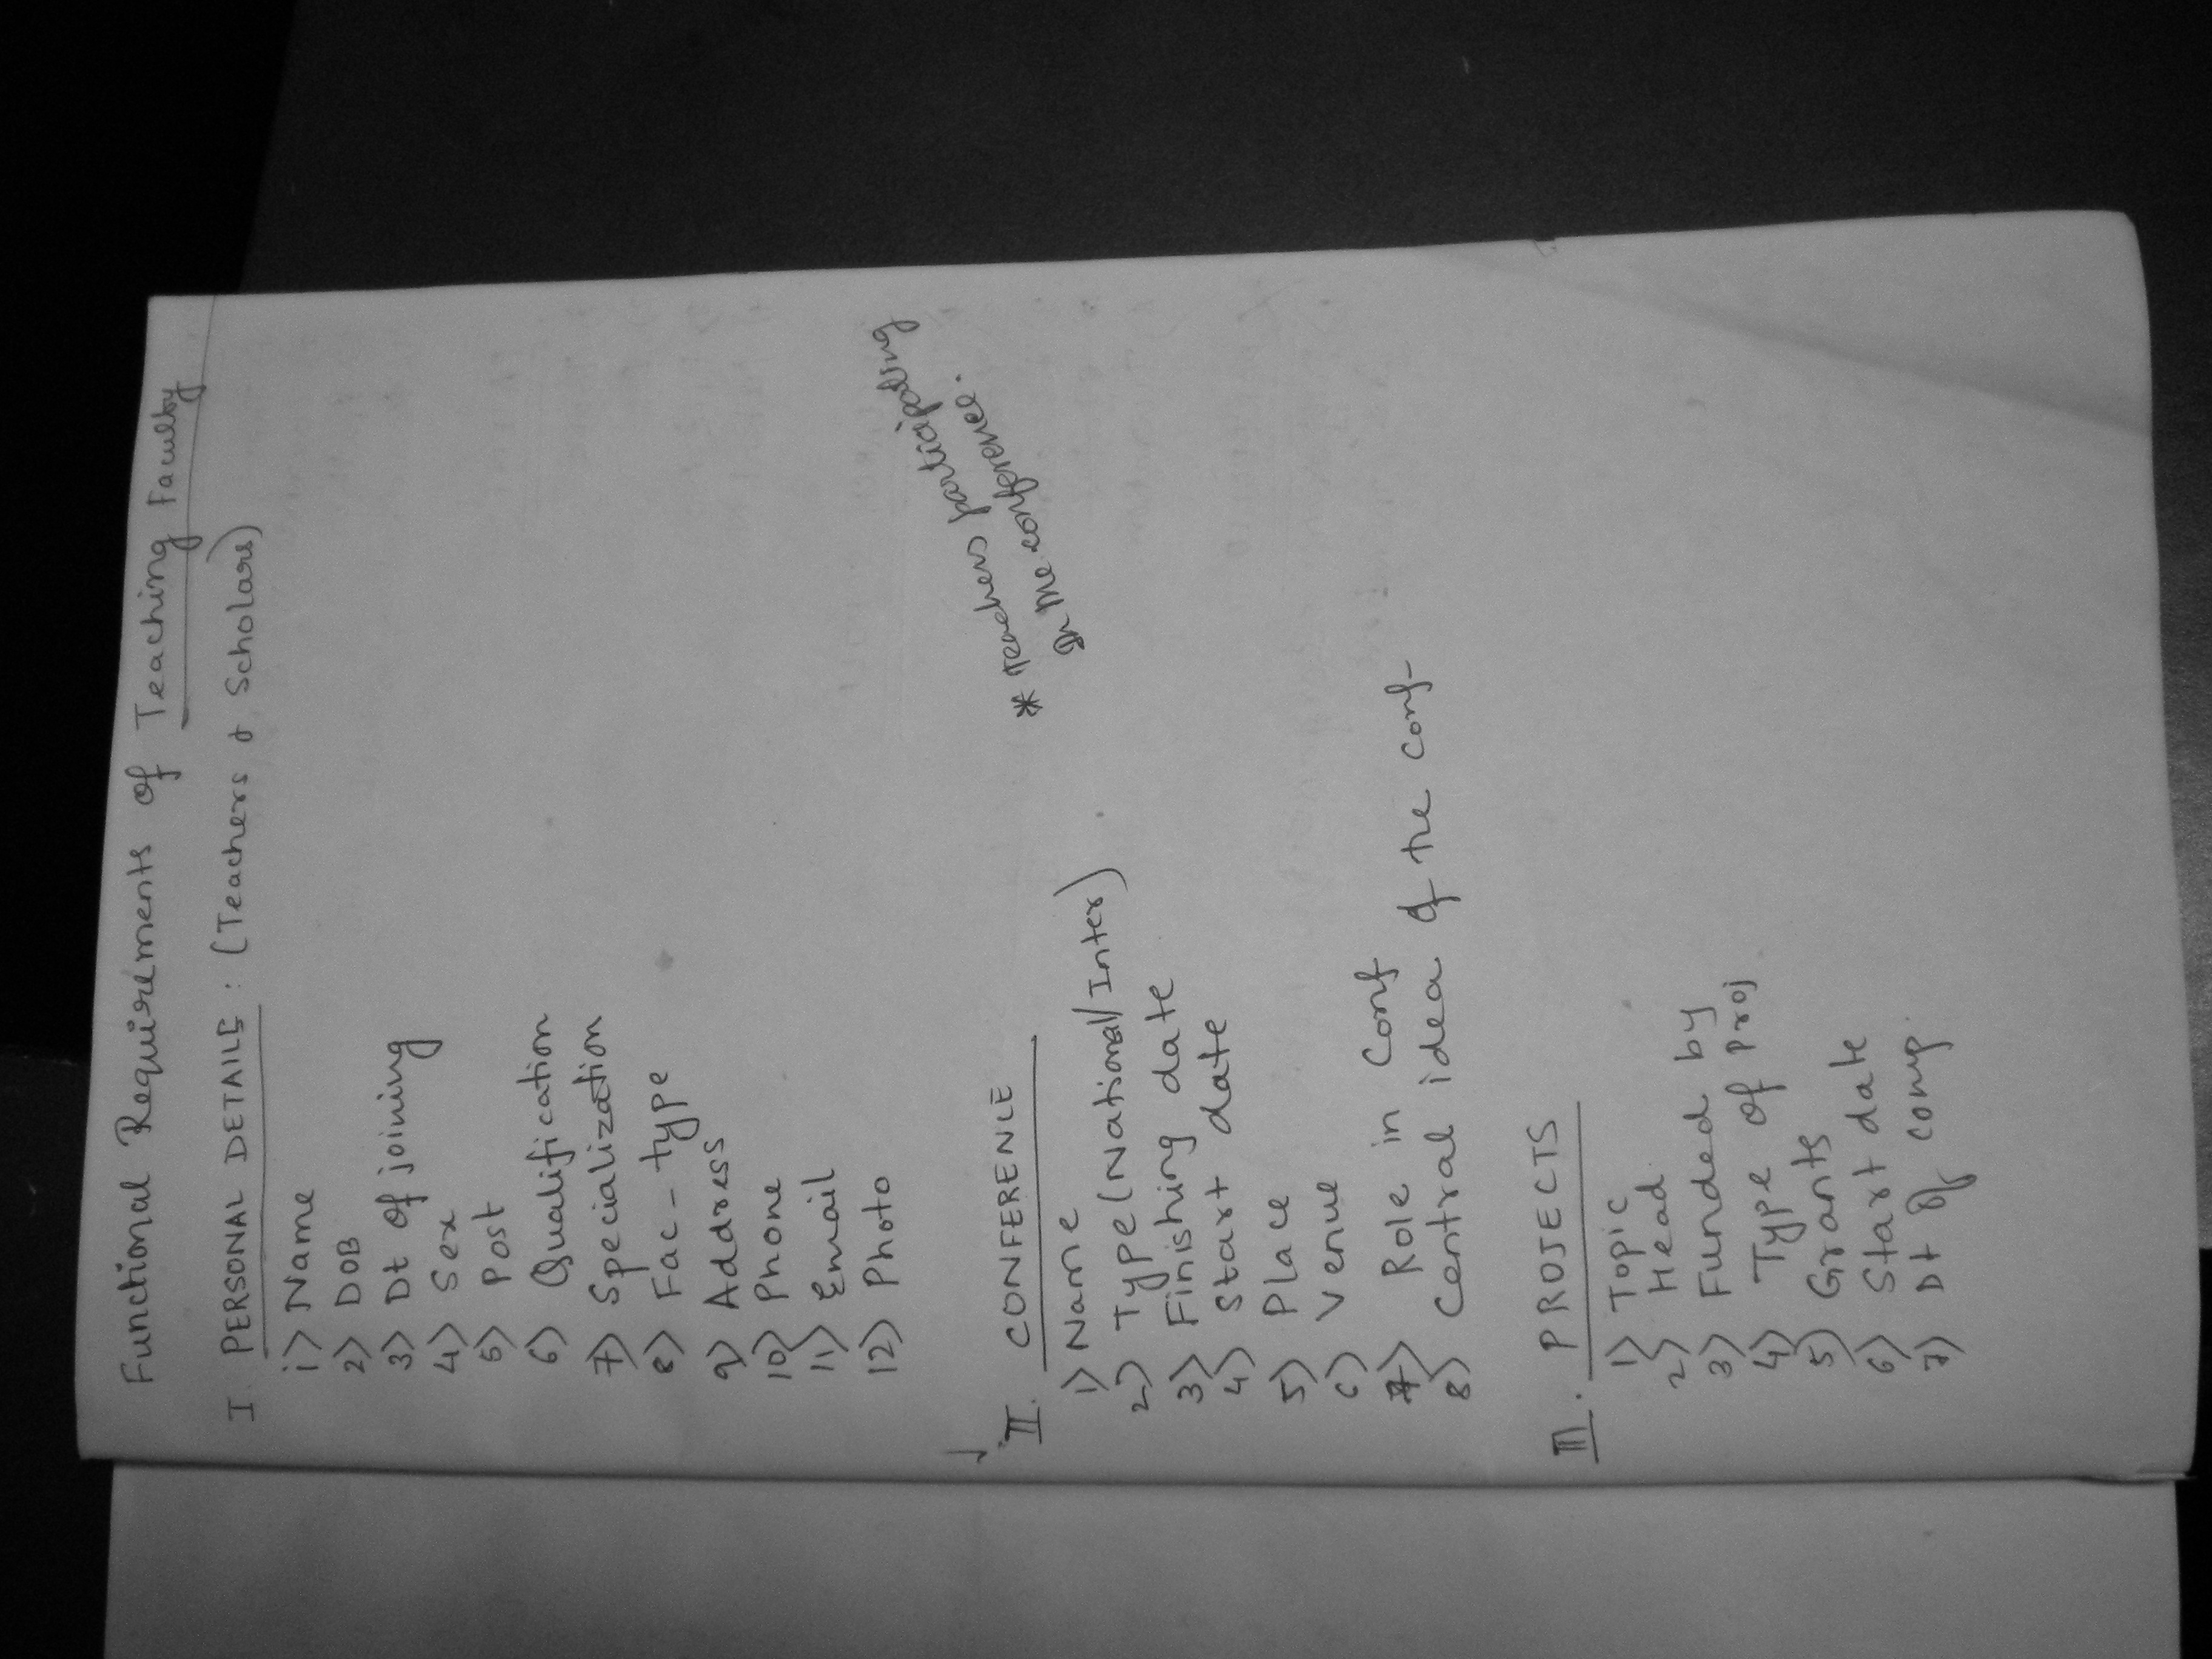 Functional Requirements of Teaching Faculty
I PERSONAL DETAILS : (Teachers & Scholars)
1) Name
2) DOB
3) Dt of joining
4) Sex
5) Post
6) Qualification
7) Specialization
8) Fac-type
9) Address
10) Phone
11) Email
12) Photo
* Teachers participating
In the conference.
II. CONFERENCE
1) Name
2) Type (National/Inter)
3) Finishing date
4) Start date
5) Place
6) Venue
7) Role in Conf
8) Central idea of the conf
III. PROJECTS
1) Topic
2) Head
3) Funded by
4) Type of proj
5) Grants
6) Start date
7) Dt of comp.